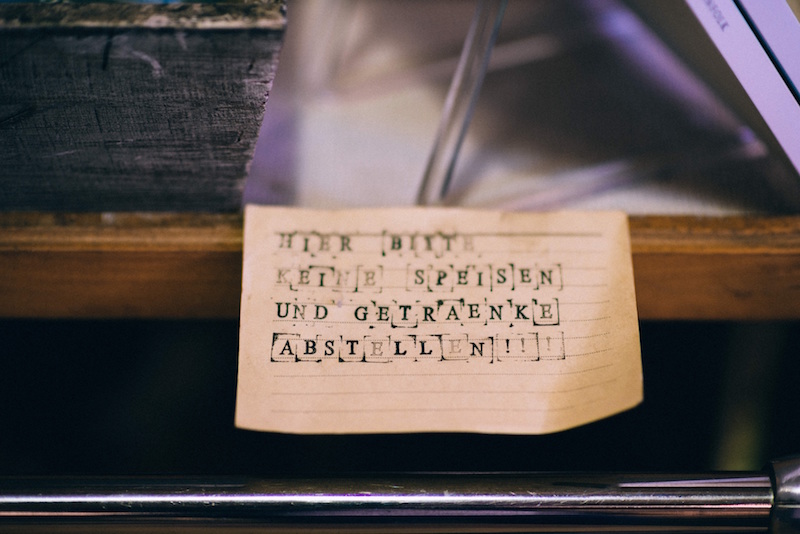 HIER BITTE
KEINE SPEISEN
UND GETRAENKE
ABSTELLEN!!!